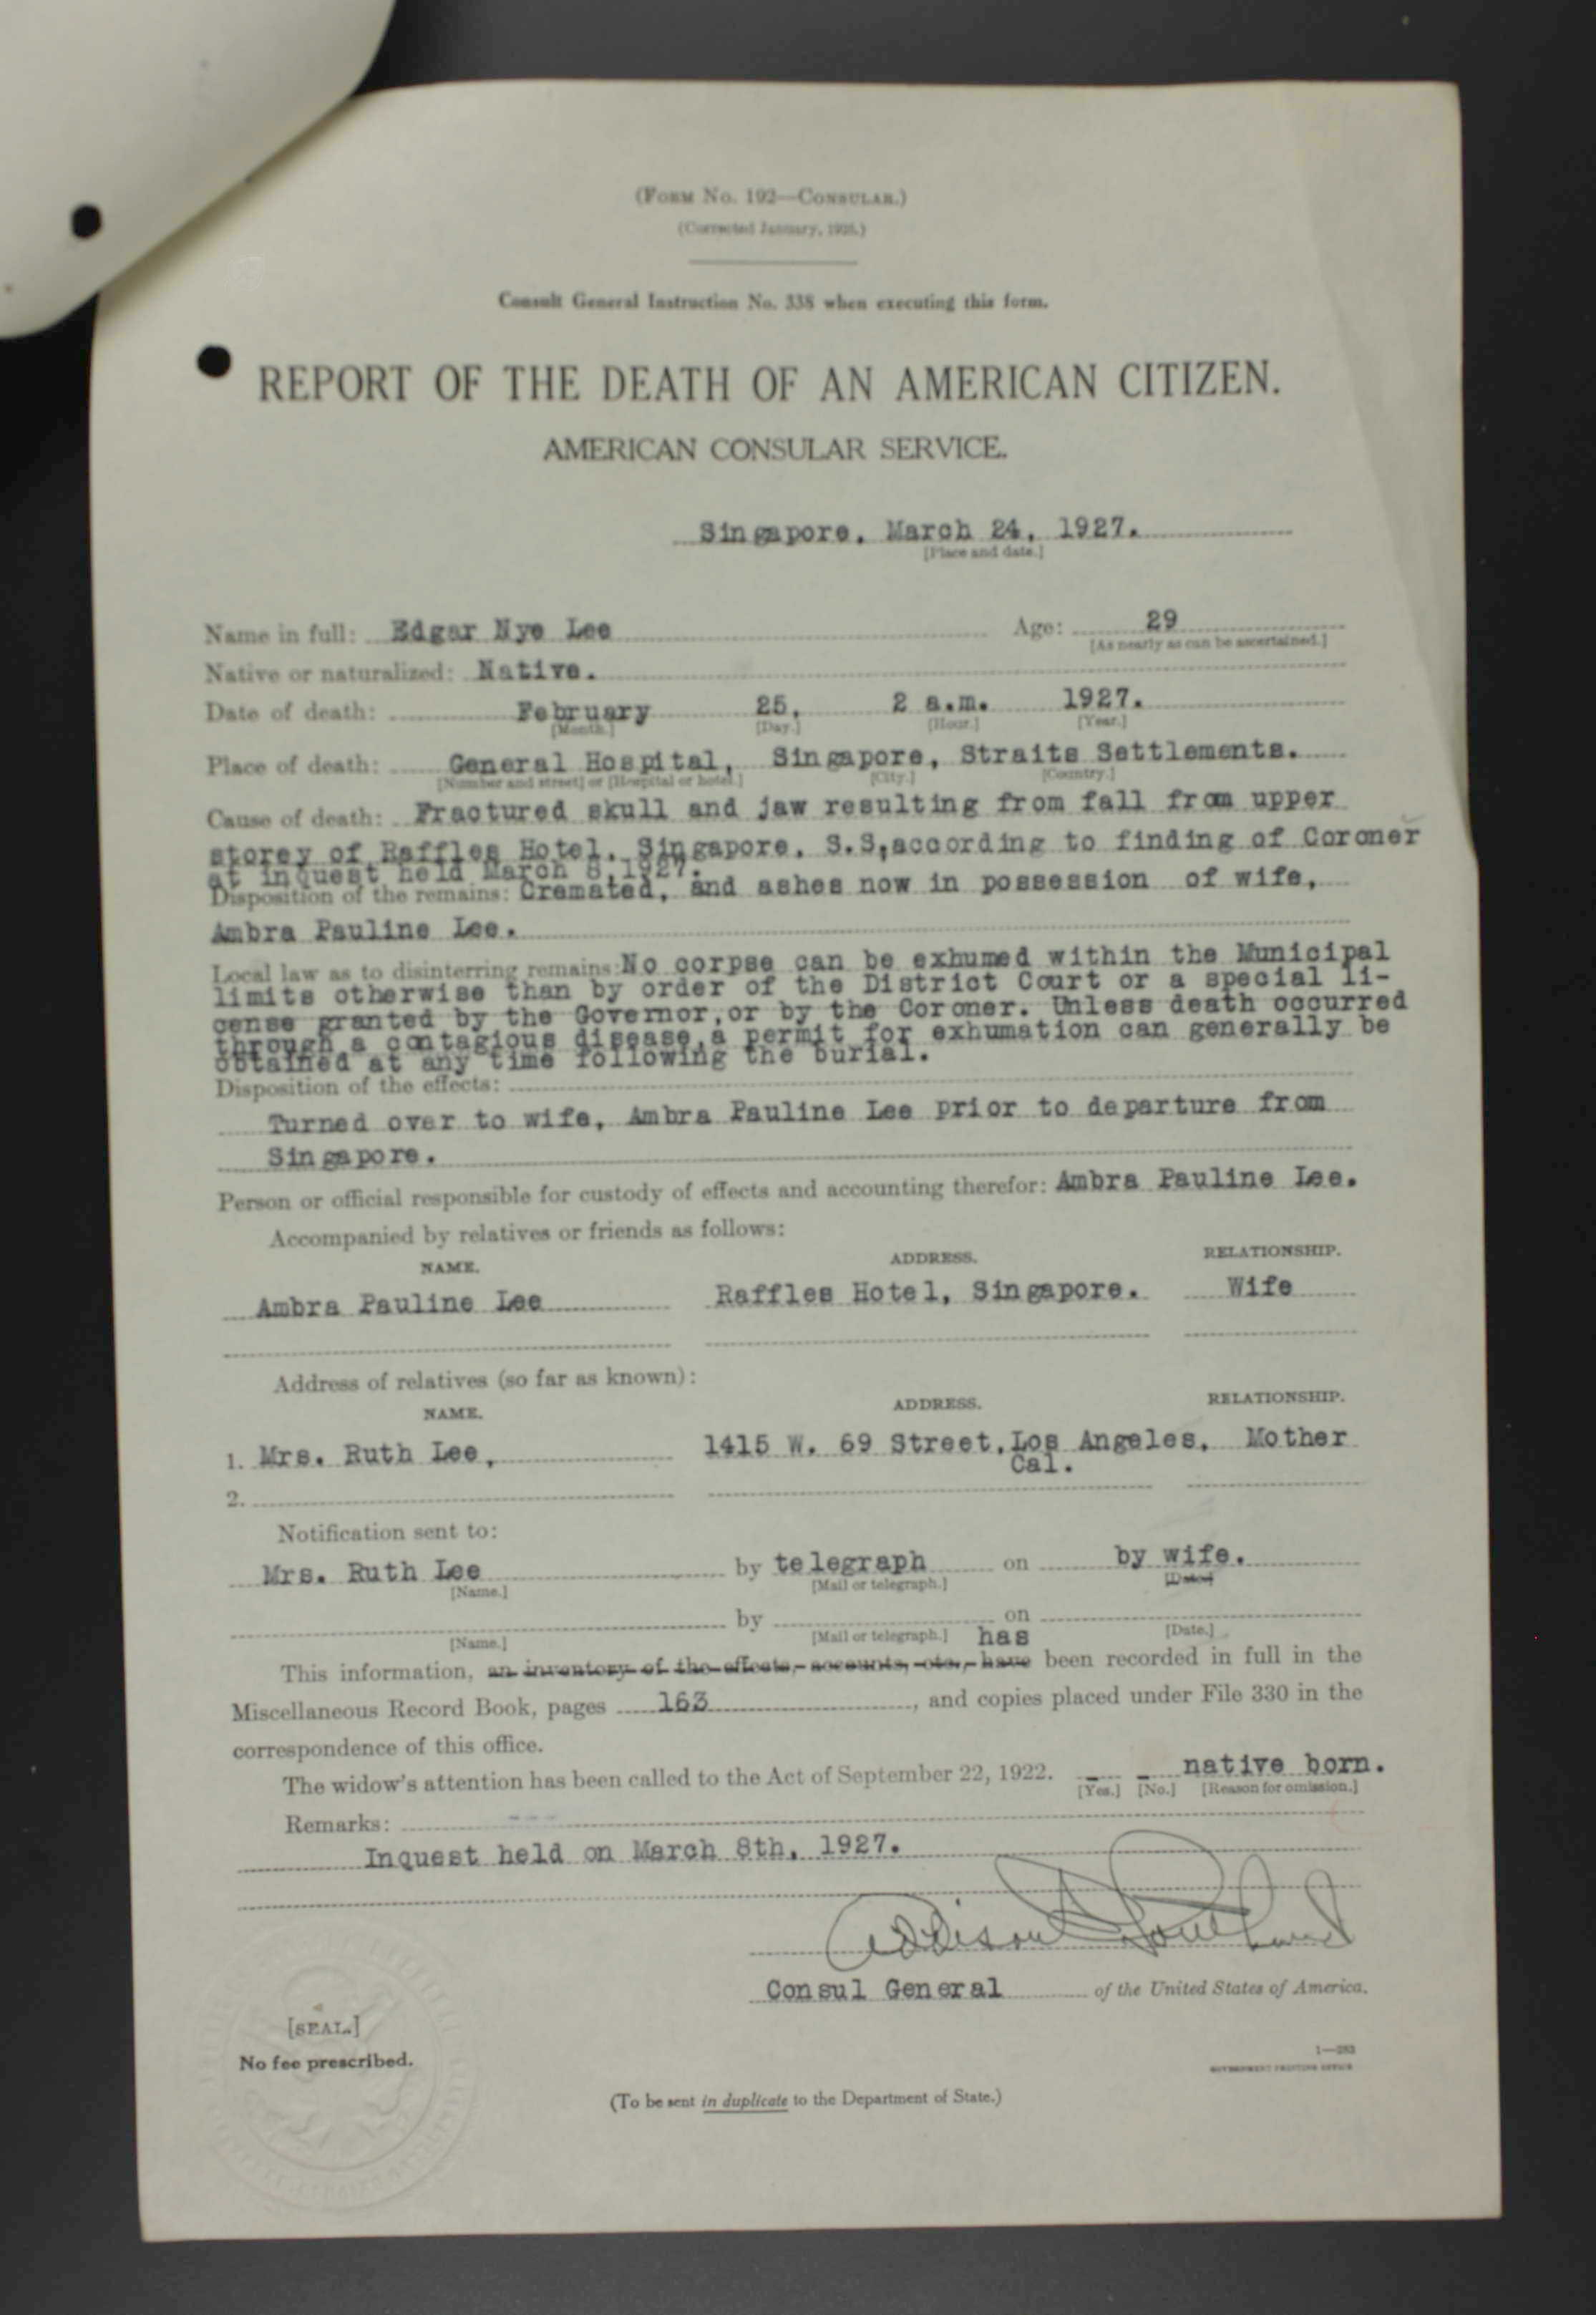 (Form No. 192—Consular.)
(Corrected January, 1925.)
Consult General Instruction No. 338 when executing this form.
REPORT OF THE DEATH OF AN AMERICAN CITIZEN.
AMERICAN CONSULAR SERVICE.
Singapore, March 24, 1927.
[Place and date.]
Name in full: Edgar Nye Lee Age: 29
[As nearly as can be ascertained.]
Native or naturalized: Native.
Date of death: February 25, 2 a.m. 1927.
[Month.] [Day.] [Hour.] [Year.]
Place of death: General Hospital, Singapore, Straits Settlements.
[Number and street] or [Hospital or hotel.] [City.] [Country.]
Cause of death: Fractured skull and jaw resulting from fall from upper
storey of Raffles Hotel, Singapore, S.S, according to finding of Coroner
at inquest held March 8, 1927.
Disposition of the remains: Cremated, and ashes now in possession of wife,
Ambra Pauline Lee.
Local law as to disinterring remains: No corpse can be exhumed within the Municipal
limits otherwise than by order of the District Court or a special li-
cense granted by the Governor, or by the Coroner. Unless death occurred
through a contagious disease, a permit for exhumation can generally be
obtained at any time following the burial.
Disposition of the effects:
Turned over to wife, Ambra Pauline Lee prior to departure from
Singapore.
Person or official responsible for custody of effects and accounting therefor: Ambra Pauline Lee.
Accompanied by relatives or friends as follows:
NAME. ADDRESS. RELATIONSHIP.
Ambra Pauline Lee Raffles Hotel, Singapore. Wife
Address of relatives (so far as known):
NAME. ADDRESS. RELATIONSHIP.
1. Mrs. Ruth Lee, 1415 W. 69 Street, Los Angeles, Mother
Cal.
2.
Notification sent to:
Mrs. Ruth Lee by telegraph on by wife.
[Name.] [Mail or telegraph.] [Date.]
by on
[Name.] [Mail or telegraph.] has [Date.]
This information, an inventory of the effects, accounts, etc., have been recorded in full in the
Miscellaneous Record Book, pages 163, and copies placed under File 330 in the
correspondence of this office.
The widow's attention has been called to the Act of September 22, 1922. - - native born.
[Yes.] [No.] [Reason for omission.]
Remarks:
Inquest held on March 8th, 1927.
Addison Southard
Consul General of the United States of America.
[SEAL.]
No fee prescribed.
1—283
GOVERNMENT PRINTING OFFICE
(To be sent in duplicate to the Department of State.)